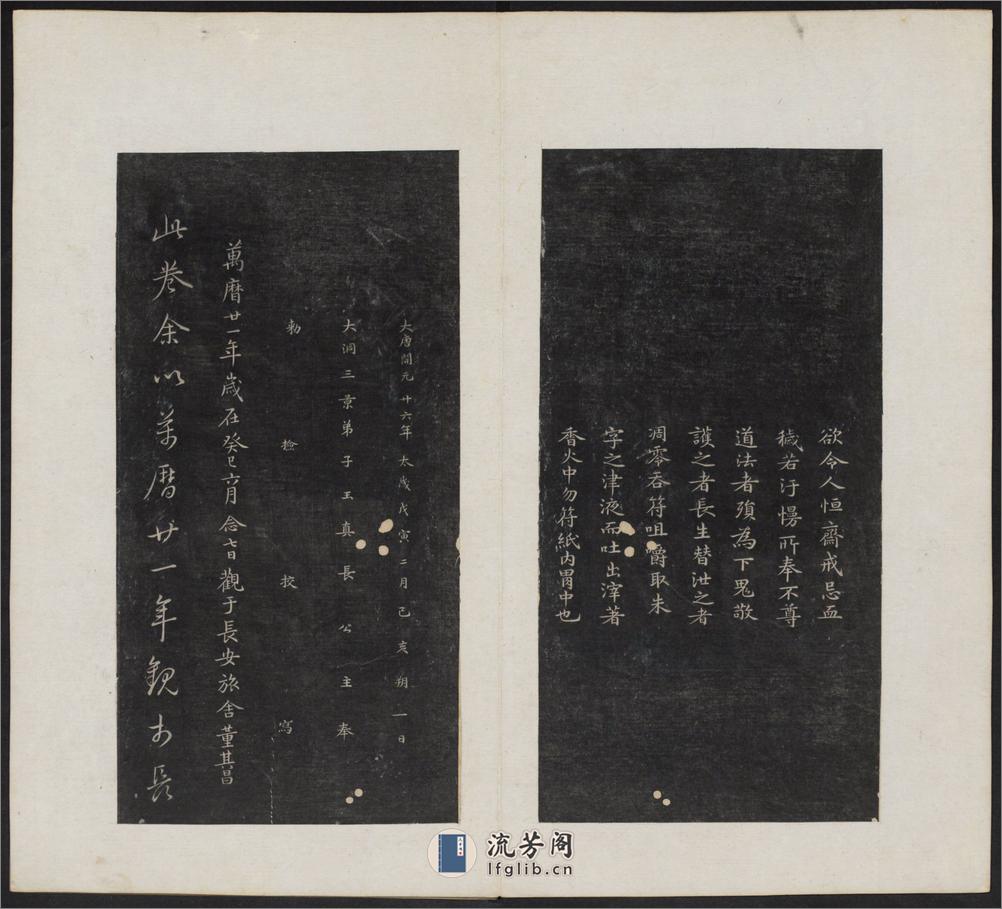 欲令人恒齋戒忌血
穢若汙慢所奉不尊
道法者殞為下鬼敬
護之者長生替泄之者
凋零吞符咀嚼取朱
字之津液而吐出滓著
香火中勿符紙內胃中也
大唐開元廿六年太歲戊寅二月己亥朔一日
大洞三景弟子玉真長公主奉
勑檢校寫
萬曆廿一年歲在癸巳六月念七日觀于長安旅舍董其昌
此卷余以萬曆廿一年觀於長
流芳阁
lfglib.cn